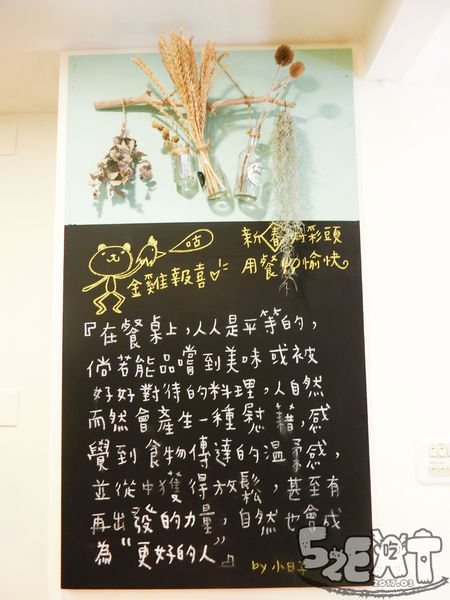 咕
金雞報喜
新春好彩頭
用餐愉快
『在餐桌上,人人是平等的,
倘若能品嚐到美味或被
好好對待的料理,人自然
而然會產生一種慰藉,感
覺到食物傳達的溫柔感,
並從中獲得放鬆,甚至有
再出發的力量,自然也會成
為"更好的人"』
by 小日子
52EAT
2017.03